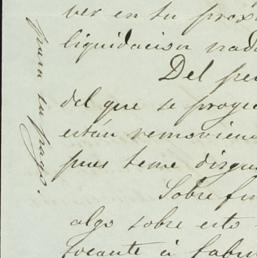 ver en su prox
liquidacion nad
Del pr
del que se proye
están removien
pues teme disgu
Sobre fu
algo sobre esto
tocante á fabri
para su pago.